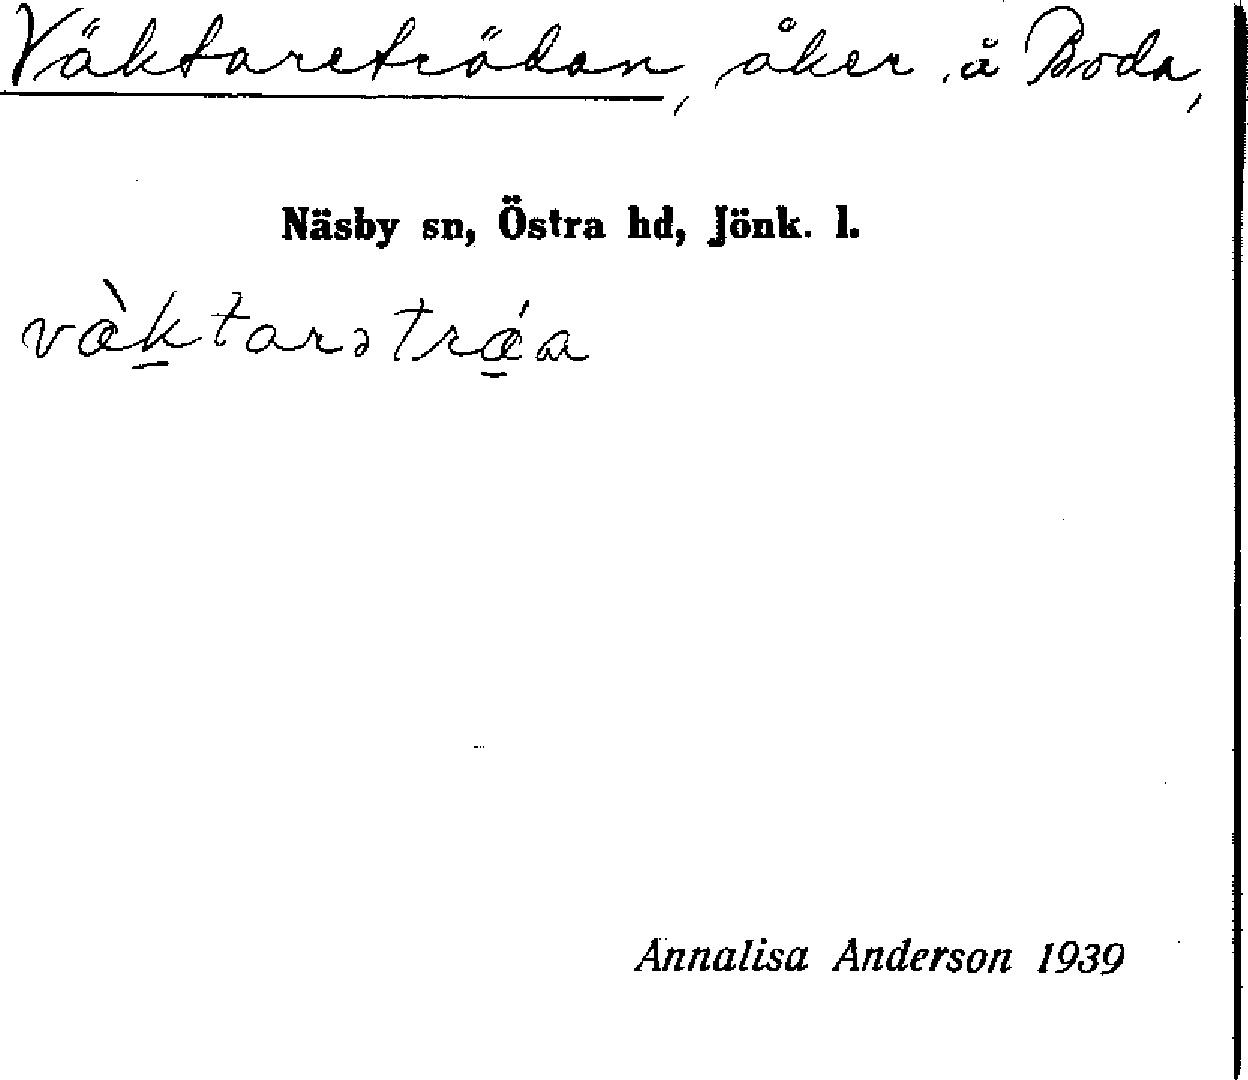 Väktareträdan, åker å Boda,
Näsby sn, Östra hd, Jönk. l.
væ̀k̲tarətrǽ̲a
Annalisa Anderson 1939